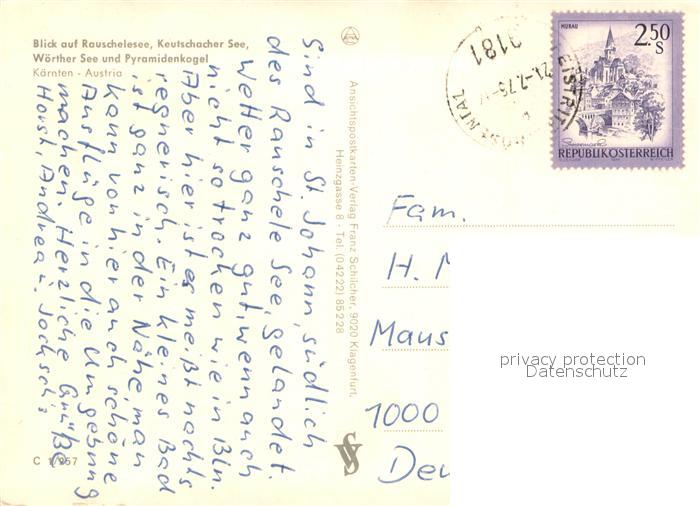 Blick auf Rauschelesee, Keutschacher See,
Wörther See und Pyramidenkogel
Kärnten - Austria
Sind in St. Johann, südlich
des Rauschele See, gelandet.
Wetter ganz gut, wenn auch
nicht so trocken wie in Bln.
Aber hier ist es meißt nachts
regnerisch. Ein kleines Bad
ist ganz in der Nähe, man
kann von hier auch schöne
Ausflüge in die Umgebung
machen. Herzliche Grüße
Horst, Andrea u.
C 1/957
Ansichtspostkarten-Verlag Franz Schilcher, 9020 Klagenfurt,
Heinzgasse 8 - Tel. (04222) 85228
MURAU
2.50
S
REPUBLIK ÖSTERREICH
9181
Fam.
H. M
Maus
1000
Deu
privacy protection
Datenschutz